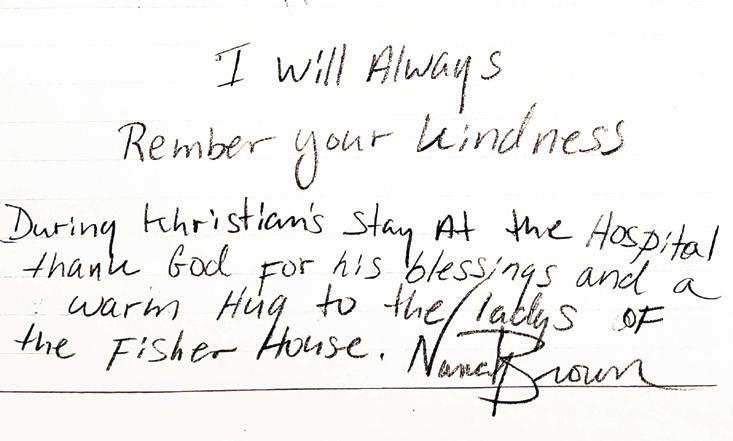 I Will Always
Rember your kindness
During Khristian's stay At the Hospital
thank God For his blessings and a
warm Hug to the ladys OF
the Fisher House. Brown